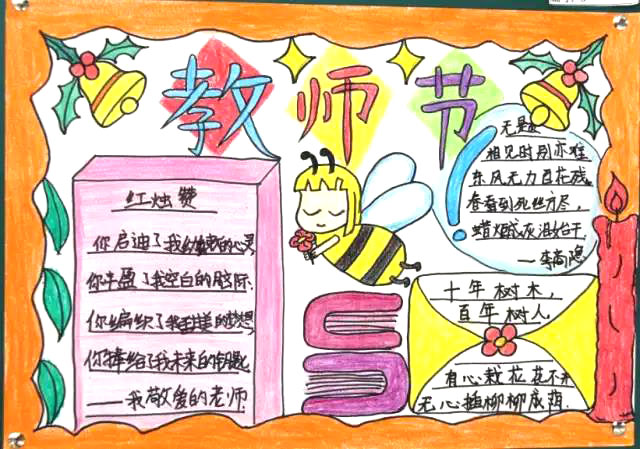 教师节
红烛赞
你启迪了我幼稚的心灵
你丰盈了我空白的脑际
你编织了我至美的梦想
你捧给了我未来的钥匙
——我敬爱的老师
无题
相见时别亦难
东风无力百花残
春蚕到死丝方尽,
蜡炬成灰泪始干,
——李商隐
十年树木,
百年树人
有心栽花花不开
无心插柳柳成荫